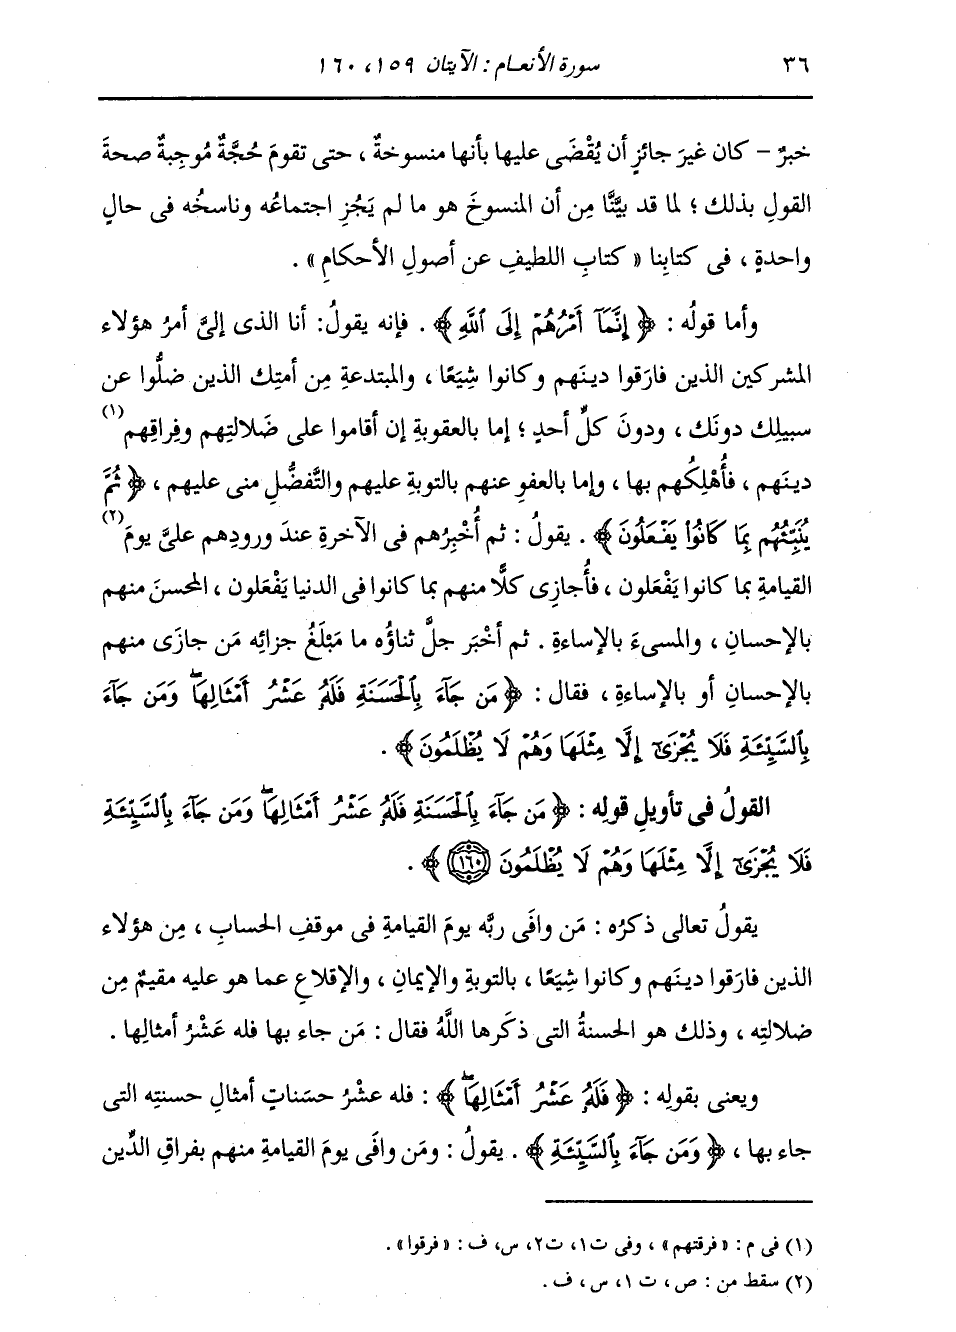 ٣٦ سورة الأنعـام : الآيتان ١٥٩، ١٦٠
خبرٌ – كان غيرَ جائزٍ أن يُقْضَى عليها بأنها منسوخةٌ ، حتى تقومَ حُجَّةٌ مُوجِبةٌ صحةَ
القولِ بذلك ؛ لما قد بيَّنَّا مِن أن المنسوخَ هو ما لم يَجُزِ اجتماعُه وناسخُه فى حالٍ
واحدةٍ ، فى كتابِنا « كتابِ اللطيفِ عن أصولِ الأحكامِ » .
وأما قولُه : ﴿ إِنَّمَآ أَمْرُهُمْ إِلَى ٱللَّهِ ﴾ . فإنه يقولُ: أنا الذى إلىَّ أمرُ هؤلاء
المشركين الذين فارَقوا دينَهم وكانوا شِيَعًا ، والمبتدعةِ مِن أمتِك الذين ضلُّوا عن
سبيلِك دونَك ، ودونَ كلِّ أحدٍ ؛ إما بالعقوبةِ إن أقاموا على ضَلالتِهم وفِراقِهم (١)
دينَهم ، فأُهْلِكُهم بها ، وإما بالعفوِ عنهم بالتوبةِ عليهم والتَّفضُّلِ منى عليهم ، ﴿ ثُمَّ
يُنَبِّئُهُم بِمَا كَانُوا۟ يَفْعَلُونَ ﴾ . يقولُ : ثم أُخْبِرُهم فى الآخرةِ عندَ ورودِهم علىَّ يومَ (٢)
القيامةِ بما كانوا يَفْعَلون ، فأُجازِى كلًّا منهم بما كانوا فى الدنيا يَفْعَلون ، المحسنَ منهم
بالإحسانِ ، والمسىءَ بالإساءةِ . ثم أخْبَر جلَّ ثناؤُه ما مَبْلَغُ جزائِه مَن جازَى منهم
بالإحسانِ أو بالإساءةِ ، فقال : ﴿ مَن جَآءَ بِٱلْحَسَنَةِ فَلَهُۥ عَشْرُ أَمْثَالِهَاۖ وَمَن جَآءَ
بِٱلسَّيِّئَةِ فَلَا يُجْزَىٰٓ إِلَّا مِثْلَهَا وَهُمْ لَا يُظْلَمُونَ ﴾ .
القولُ فى تأويلِ قولِه : ﴿ مَن جَآءَ بِٱلْحَسَنَةِ فَلَهُۥ عَشْرُ أَمْثَالِهَاۖ وَمَن جَآءَ بِٱلسَّيِّئَةِ
فَلَا يُجْزَىٰٓ إِلَّا مِثْلَهَا وَهُمْ لَا يُظْلَمُونَ ١٦٠ ﴾ .
يقولُ تعالى ذكرُه : مَن وافَى ربَّه يومَ القيامةِ فى موقفِ الحسابِ ، مِن هؤلاء
الذين فارَقوا دينَهم وكانوا شِيَعًا ، بالتوبةِ والإيمانِ ، والإقلاعِ عما هو عليه مقيمٌ مِن
ضلالتِه ، وذلك هو الحسنةُ التى ذكَرها اللَّهُ فقال : مَن جاء بها فله عَشْرُ أمثالِها .
ويعنى بقولِه : ﴿ فَلَهُۥ عَشْرُ أَمْثَالِهَاۖ ﴾ : فله عشْرُ حسَناتٍ أمثالِ حسنتِه التى
جاء بها ، ﴿ وَمَن جَآءَ بِٱلسَّيِّئَةِ ﴾ . يقولُ : ومَن وافَى يومَ القيامةِ منهم بفراقِ الدِّينِ
(١) فى م : « فرقتهم » ، وفى ت١، ت٢، س، ف : « فرقوا » .
(٢) سقط من : ص ، ت ١، س ، ف .